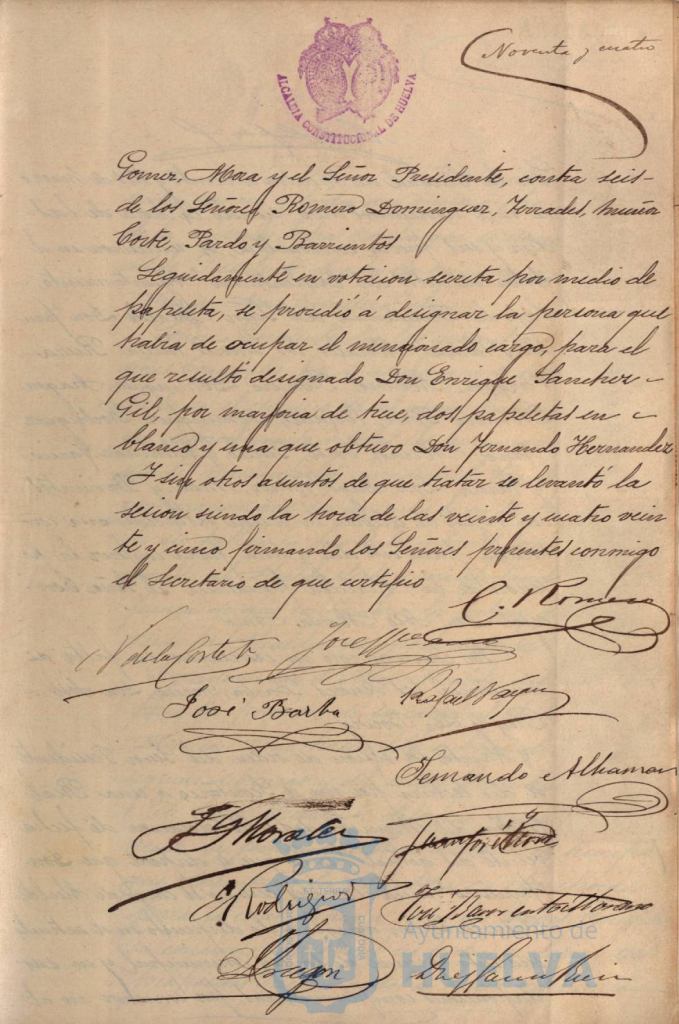 Noventa y cuatro
ALCALDIA CONSTITUCIONAL DE HUELVA
Gomez, Mora y el Señor Presidente, contra seis-
de los Señores Romero Dominguez, Terrades, Muñoz
Corte, Pardo y Barrientos
Seguidamente en votacion secreta por medio de
papeleta, se procedió á designar la persona que
habia de ocupar el mencionado cargo, para el
que resultó designado Don Enrique Sanchez-
Gil, por mayoria de trece, dos papeletas en
blanco y una que obtuvo Don Fernando Hernandez
Y sin otros asuntos de que tratar se levantó la
sesion siendo la hora de las veinte y cuatro vein
te y cinco firmando los Señores presentes conmigo
el Secretario de que certifico
C. Romero
N de la Corte
José
José Barba
Rafael Vazquez
Fernando Alhaman
Morales
Rodriguez
José Barrientos Moreno
Ayuntamiento de
HUELVA